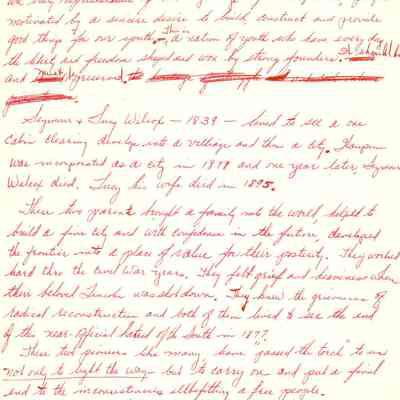 motivated by a sincere desire to build, construct and provide
good things for our youth. This is a nation of youth who have every day
the liberty and freedom shaped and won by strong founders. It should be
and must be preserved. the
Seymour & Lucy Wilcox — 1839 — lived to see a one
Cabin clearing develop into a village and then a city.
was incorporated as a city in 1877 and one year later, Seymour
Wilcox died. Lucy his wife died in 1895.
These two parents brought a family into the world, helped to
build a fine city and with confidence in the future, developed
the frontier into a place of value for their posterity. They worked
hard thru the Civil War years. They felt grief and heaviness when
their beloved Lincoln was shot down. They knew the grievances of
radical reconstruction and both of them lived to see the end
of the near-official hatred of the South in 1877.
These two pioneers like many, have "passed the torch" to us
not only to light the way but to carry on and put a final
end to the inconsistencies illbefitting a free people.